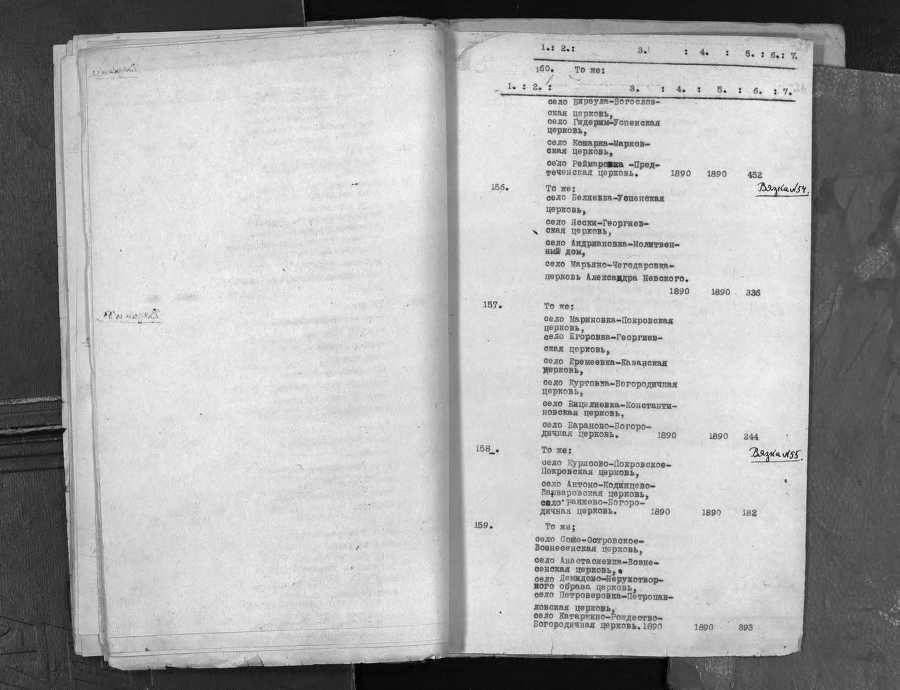 1.: 2.: 3. : 4. : 5. : 6.: 7.
160. То же:
1. : 2. : 3. : 4. : 5. : 6. : 7.
село Бирзула-Богослов-
ская церковь,
село Гидерим-Успенская
церковь,
село Кошарка-Марков-
ская церковь,
село Реймаровка -Пред-
теченская церковь. 1890 1890 452
156. То же: Вязка №54.
село Беляевка-Успенская
церковь,
село Ясски-Георгиев-
ская церковь,
село Андриановка-Молитвен-
ный дом,
село Марьяно-Чегодаровка-
церковь Александра Невского.
1890 1890 336
157. То же:
село Мариновка-Покровская
церковь,
село Егоровка-Георгиев-
ская церковь,
село Еремеевка-Казанская
церковь,
село Куртовка-Богородичная
церковь,
село Вицелиевка-Константи-
новская церковь,
село Бараново-Богоро-
дичная церковь. 1890 1890 244
158. То же: Вязка №55.
село Курисово-Покровское-
Покровская церковь,
село Антоно-Кодинцево-
Варваровская церковь,
село Ранжево-Богоро-
дичная церковь. 1890 1890 182
159. То же:
село Соше-Островское-
Вознесенская церковь,
село Анастасиевка-Возне-
сенская церковь,
село Демидово-Нерукотвор-
ного образа церковь,
село Петроверовка-Петропав-
ловская церковь,
село Катаржино-Рождество-
Богородичная церковь.1890 1890 393